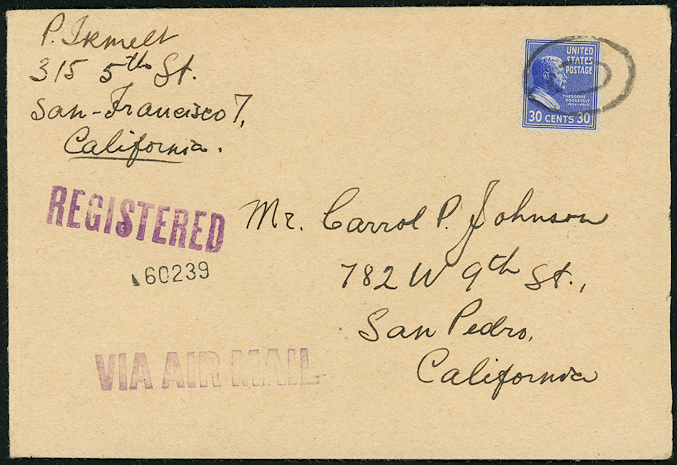 P. Irmelt
315 5th St.
San-Francisco 7,
California.
UNITED
STATES
POSTAGE
THEODORE
ROOSEVELT
30 CENTS 30
REGISTERED
60239
Mr. Carrol P. Johnson
782 W 9th St.,
San Pedro,
California
VIA AIR MAIL